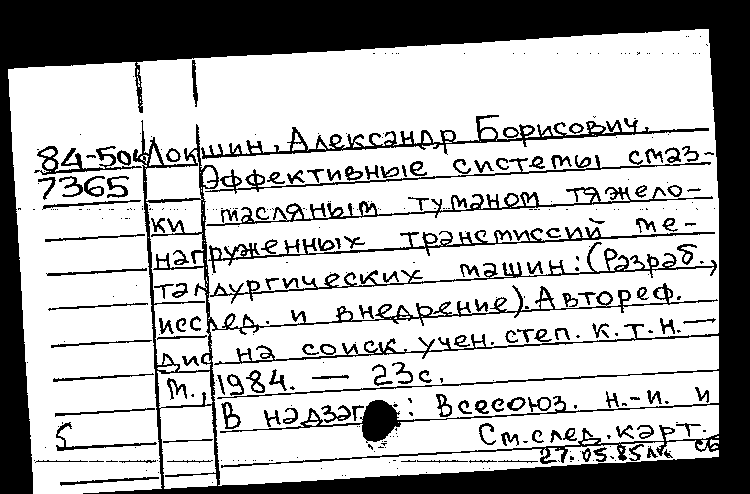 84-50к Локшин, Александр Борисович.
7365 Эффективные системы смаз-
ки масляным туманом тяжело-
нагруженных трансмиссий ме-
таллургических машин: (Разраб.,
исслед. и внедрение). Автореф.
дис. на соиск. учен. степ. к.т.н. —
М., 1984. — 23с.
В надзаг.: Всесоюз. н.-и. и
См. след. карт.
27.05.85 СБ